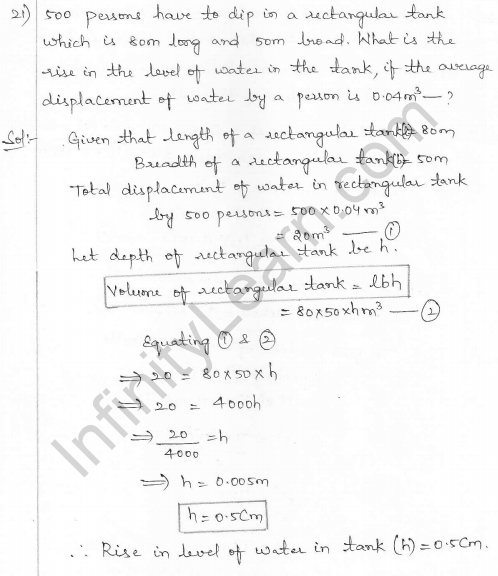 21) 500 persons have to dip in a rectangular tank
which is 80m long and 50m broad. What is the
rise in the level of water in the tank, if the average
displacement of water by a person is 0.04m³ — ?
Sol:- Given that length of a rectangular tank(l)= 80m
Breadth of a rectangular tank(b)= 50m
Total displacement of water in rectangular tank
by 500 persons = 500 × 0.04m³
= 20m³ — ①
Let depth of rectangular tank be h.
Volume of rectangular tank = lbh
= 80×50×hm³ — ②
Equating ① & ②
⟹ 20 = 80×50×h
⟹ 20 = 4000h
⟹ 20/4000 = h
⟹ h = 0.005m
h = 0.5Cm
∴ Rise in level of water in tank (h) = 0.5Cm.
InfinityLearn.com